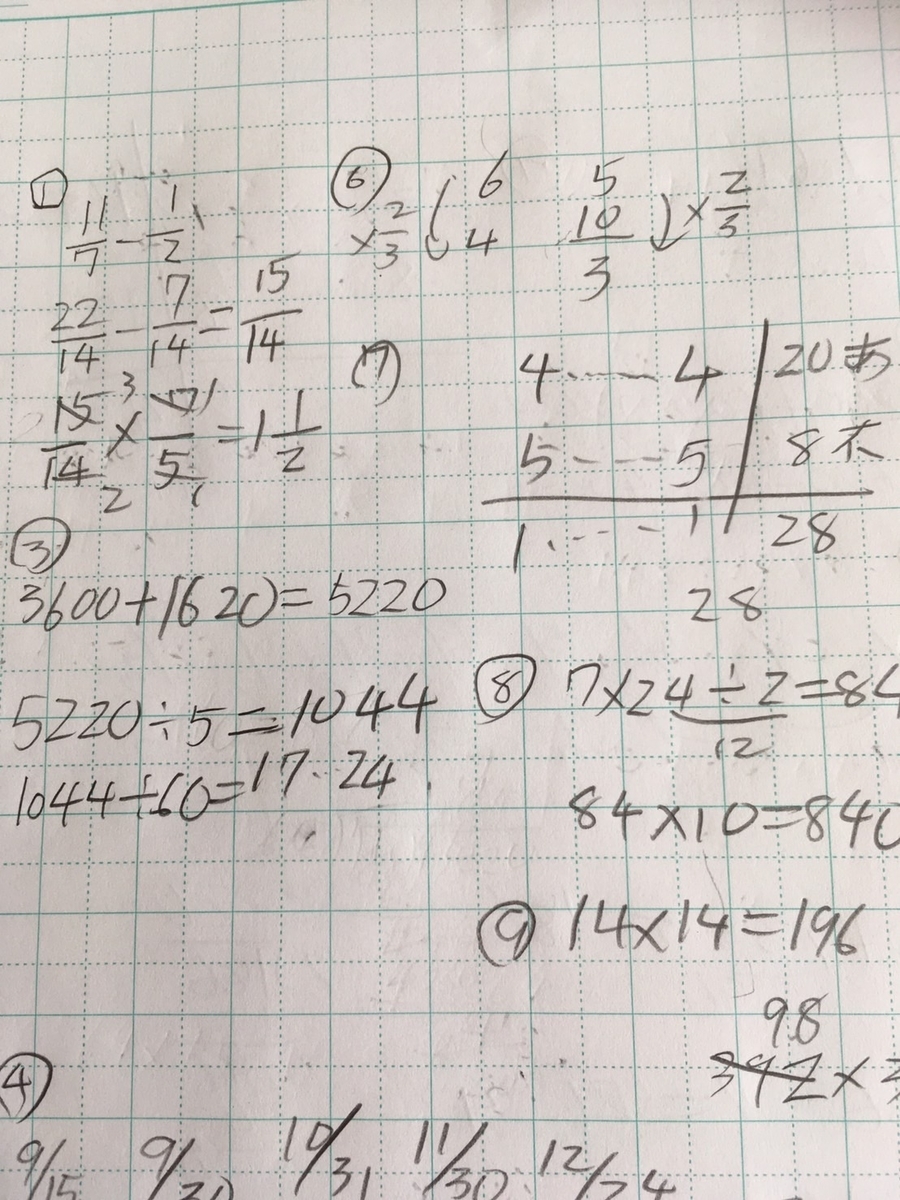 ①
11/7 - 1/2
22/14 - 7/14 = 15/14
15/14 × 7/5 = 1 1/2
3 1
2 1
③
3600+1620=5220
5220÷5=1044
1044÷60=17.24
④
9/15 9/30 10/31 11/30 12/24
⑥
6 5
×2/3 4 10/3 ×2/3
⑦
4……4 20あ
5……5 8不
1……1 28
28
⑧ 7×24÷2=84
12
84×10=840
⑨ 14×14=196
98
392×3